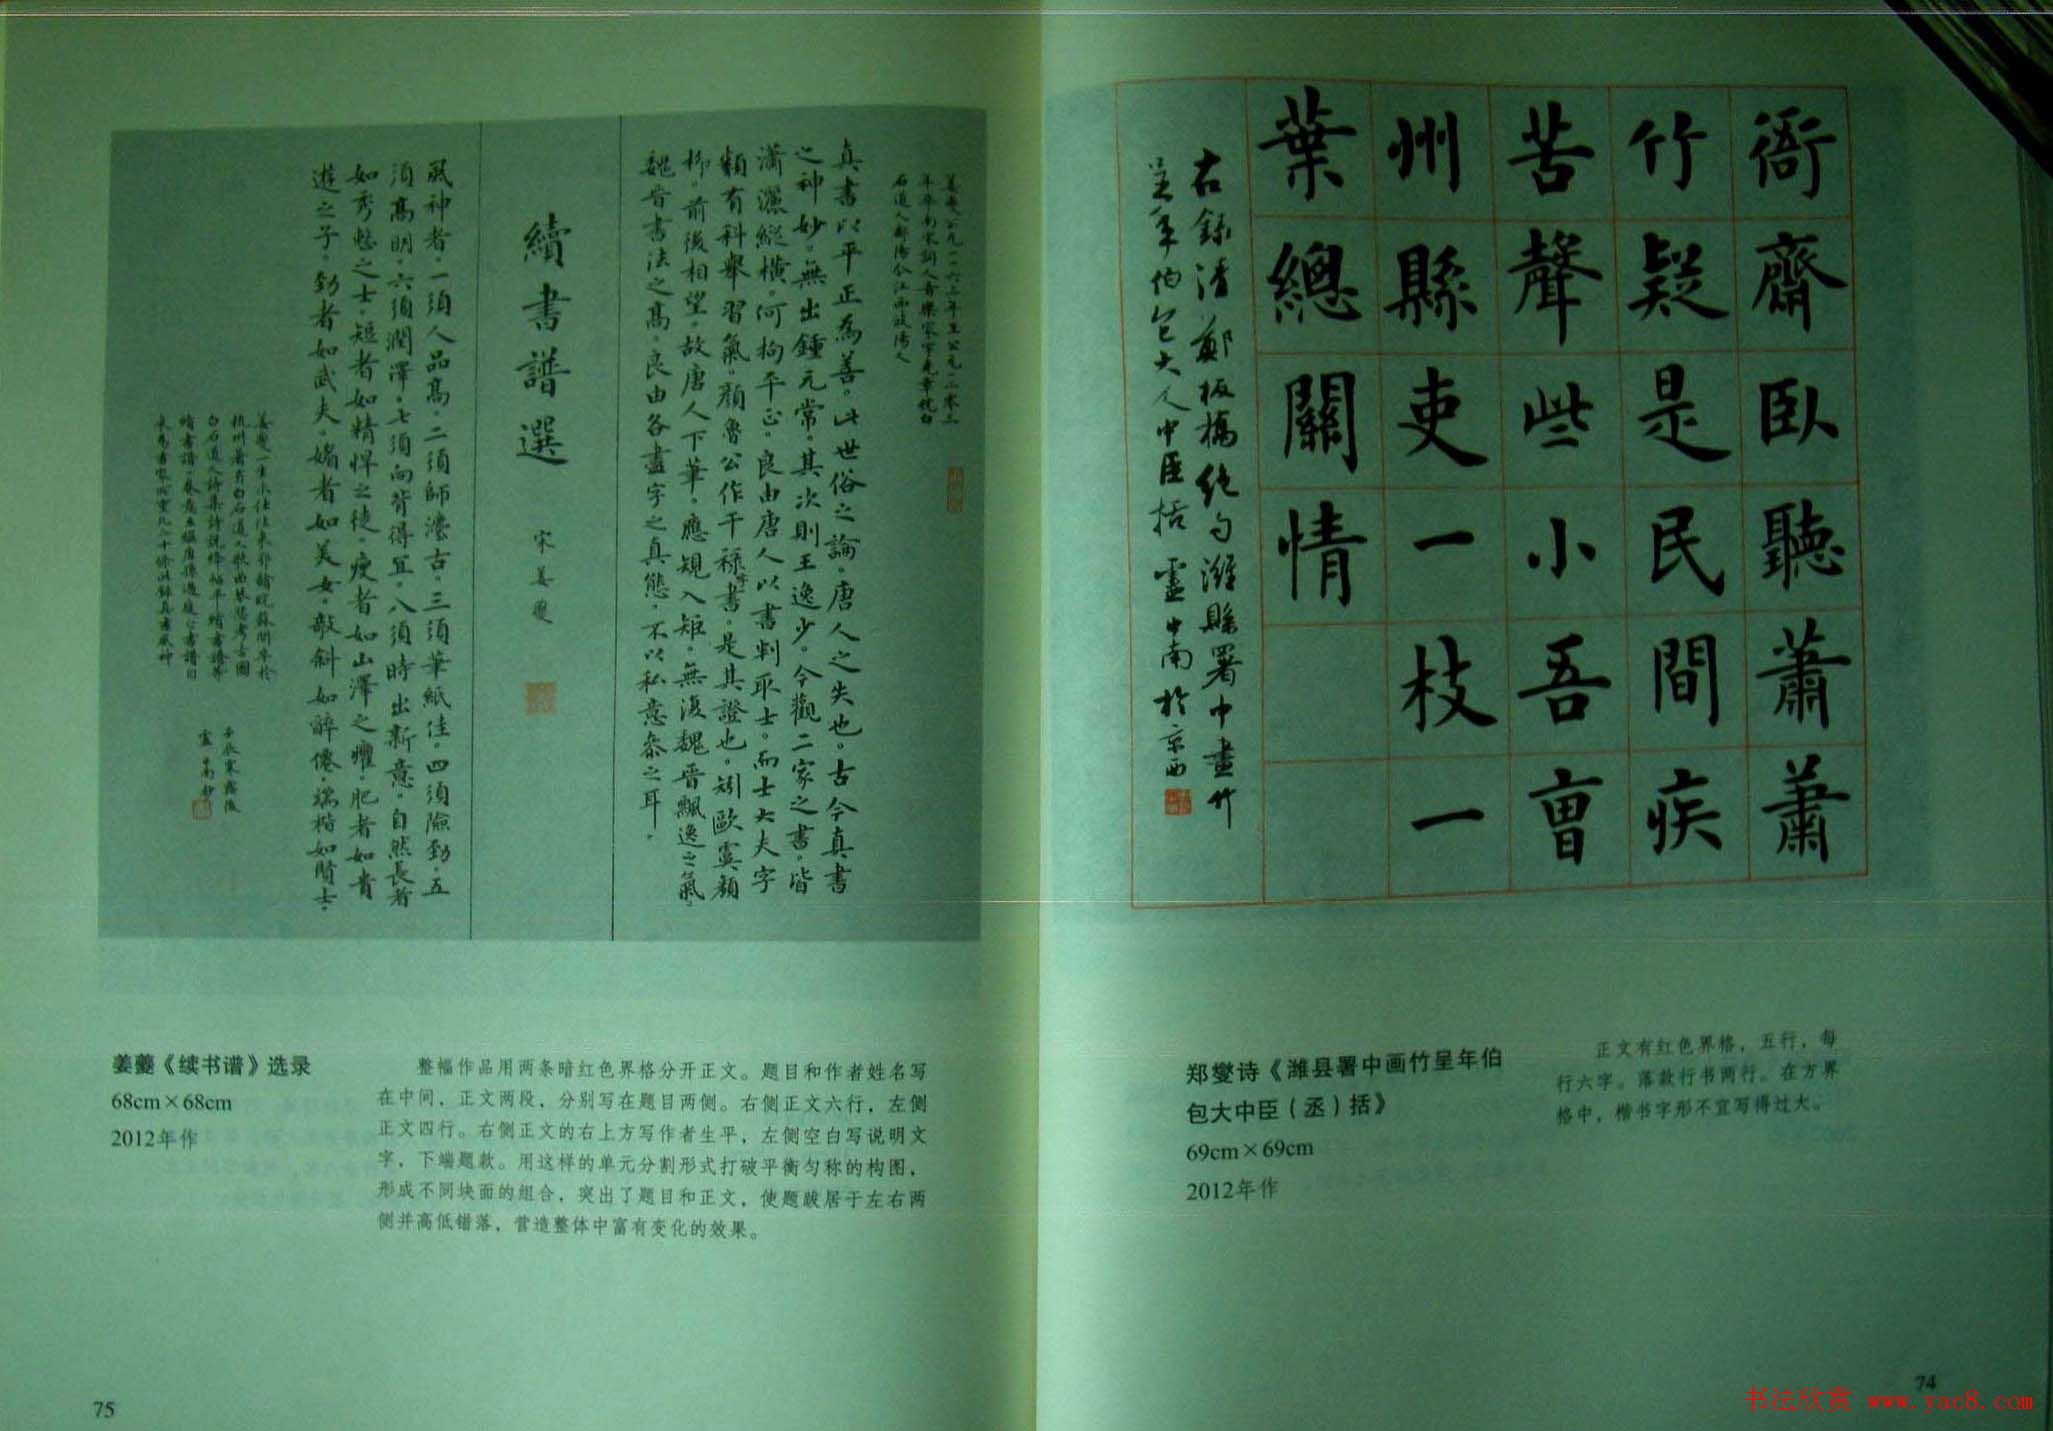 衙齋臥聽蕭蕭
竹疑是民間疾
苦聲些小吾曺
州縣吏一枝一
葉總關情
右錄清鄭板橋絕句濰縣署中畫竹
呈年伯包大人中臣括 靈中南於京西
郑燮诗《潍县署中画竹呈年伯
包大中臣（丞）括》
69cm×69cm
2012年作
正文有红色界格，五行，每
行六字。落款行书两行。在方界
格中，楷书字形不宜写得过大。
74
真書以平正為善，此世俗之論，唐人之失也。古今真書
之神妙，無出鍾元常，其次則王逸少。今觀二家之書，皆
瀟灑縱橫，何拘平正。良由唐人以書判取士，而士大夫字
類有科舉習氣。顏魯公作干祿字書，是其證也。矧歐虞顏
柳，前後相望，故唐人下筆，應規入矩，無復魏晉飄逸之氣。
魏晉書法之高，良由各盡字之真態，不以私意參之耳。
續書譜選 宋姜夔
風神者，一須人品高，二須師法古，三須筆紙佳，四須險勁，五
須高明，六須潤澤，七須向背得宜，八須時出新意。自然長者
如秀整之士，短者如精悍之徒，瘦者如山澤之癯，肥者如貴
遊之子，勁者如武夫，媚者如美女，欹斜如醉僊，端楷如賢士。
姜夔《续书谱》选录
68cm×68cm
2012年作
整幅作品用两条暗红色界格分开正文。题目和作者姓名写
在中间，正文两段，分别写在题目两侧。右侧正文六行，左侧
正文四行。右侧正文的右上方写作者生平，左侧空白写说明文
字，下端题款。用这样的单元分割形式打破平衡匀称的构图，
形成不同块面的组合，突出了题目和正文，使题跋居于左右两
侧并高低错落，营造整体中富有变化的效果。
75
书法欣赏 www.yac8.com